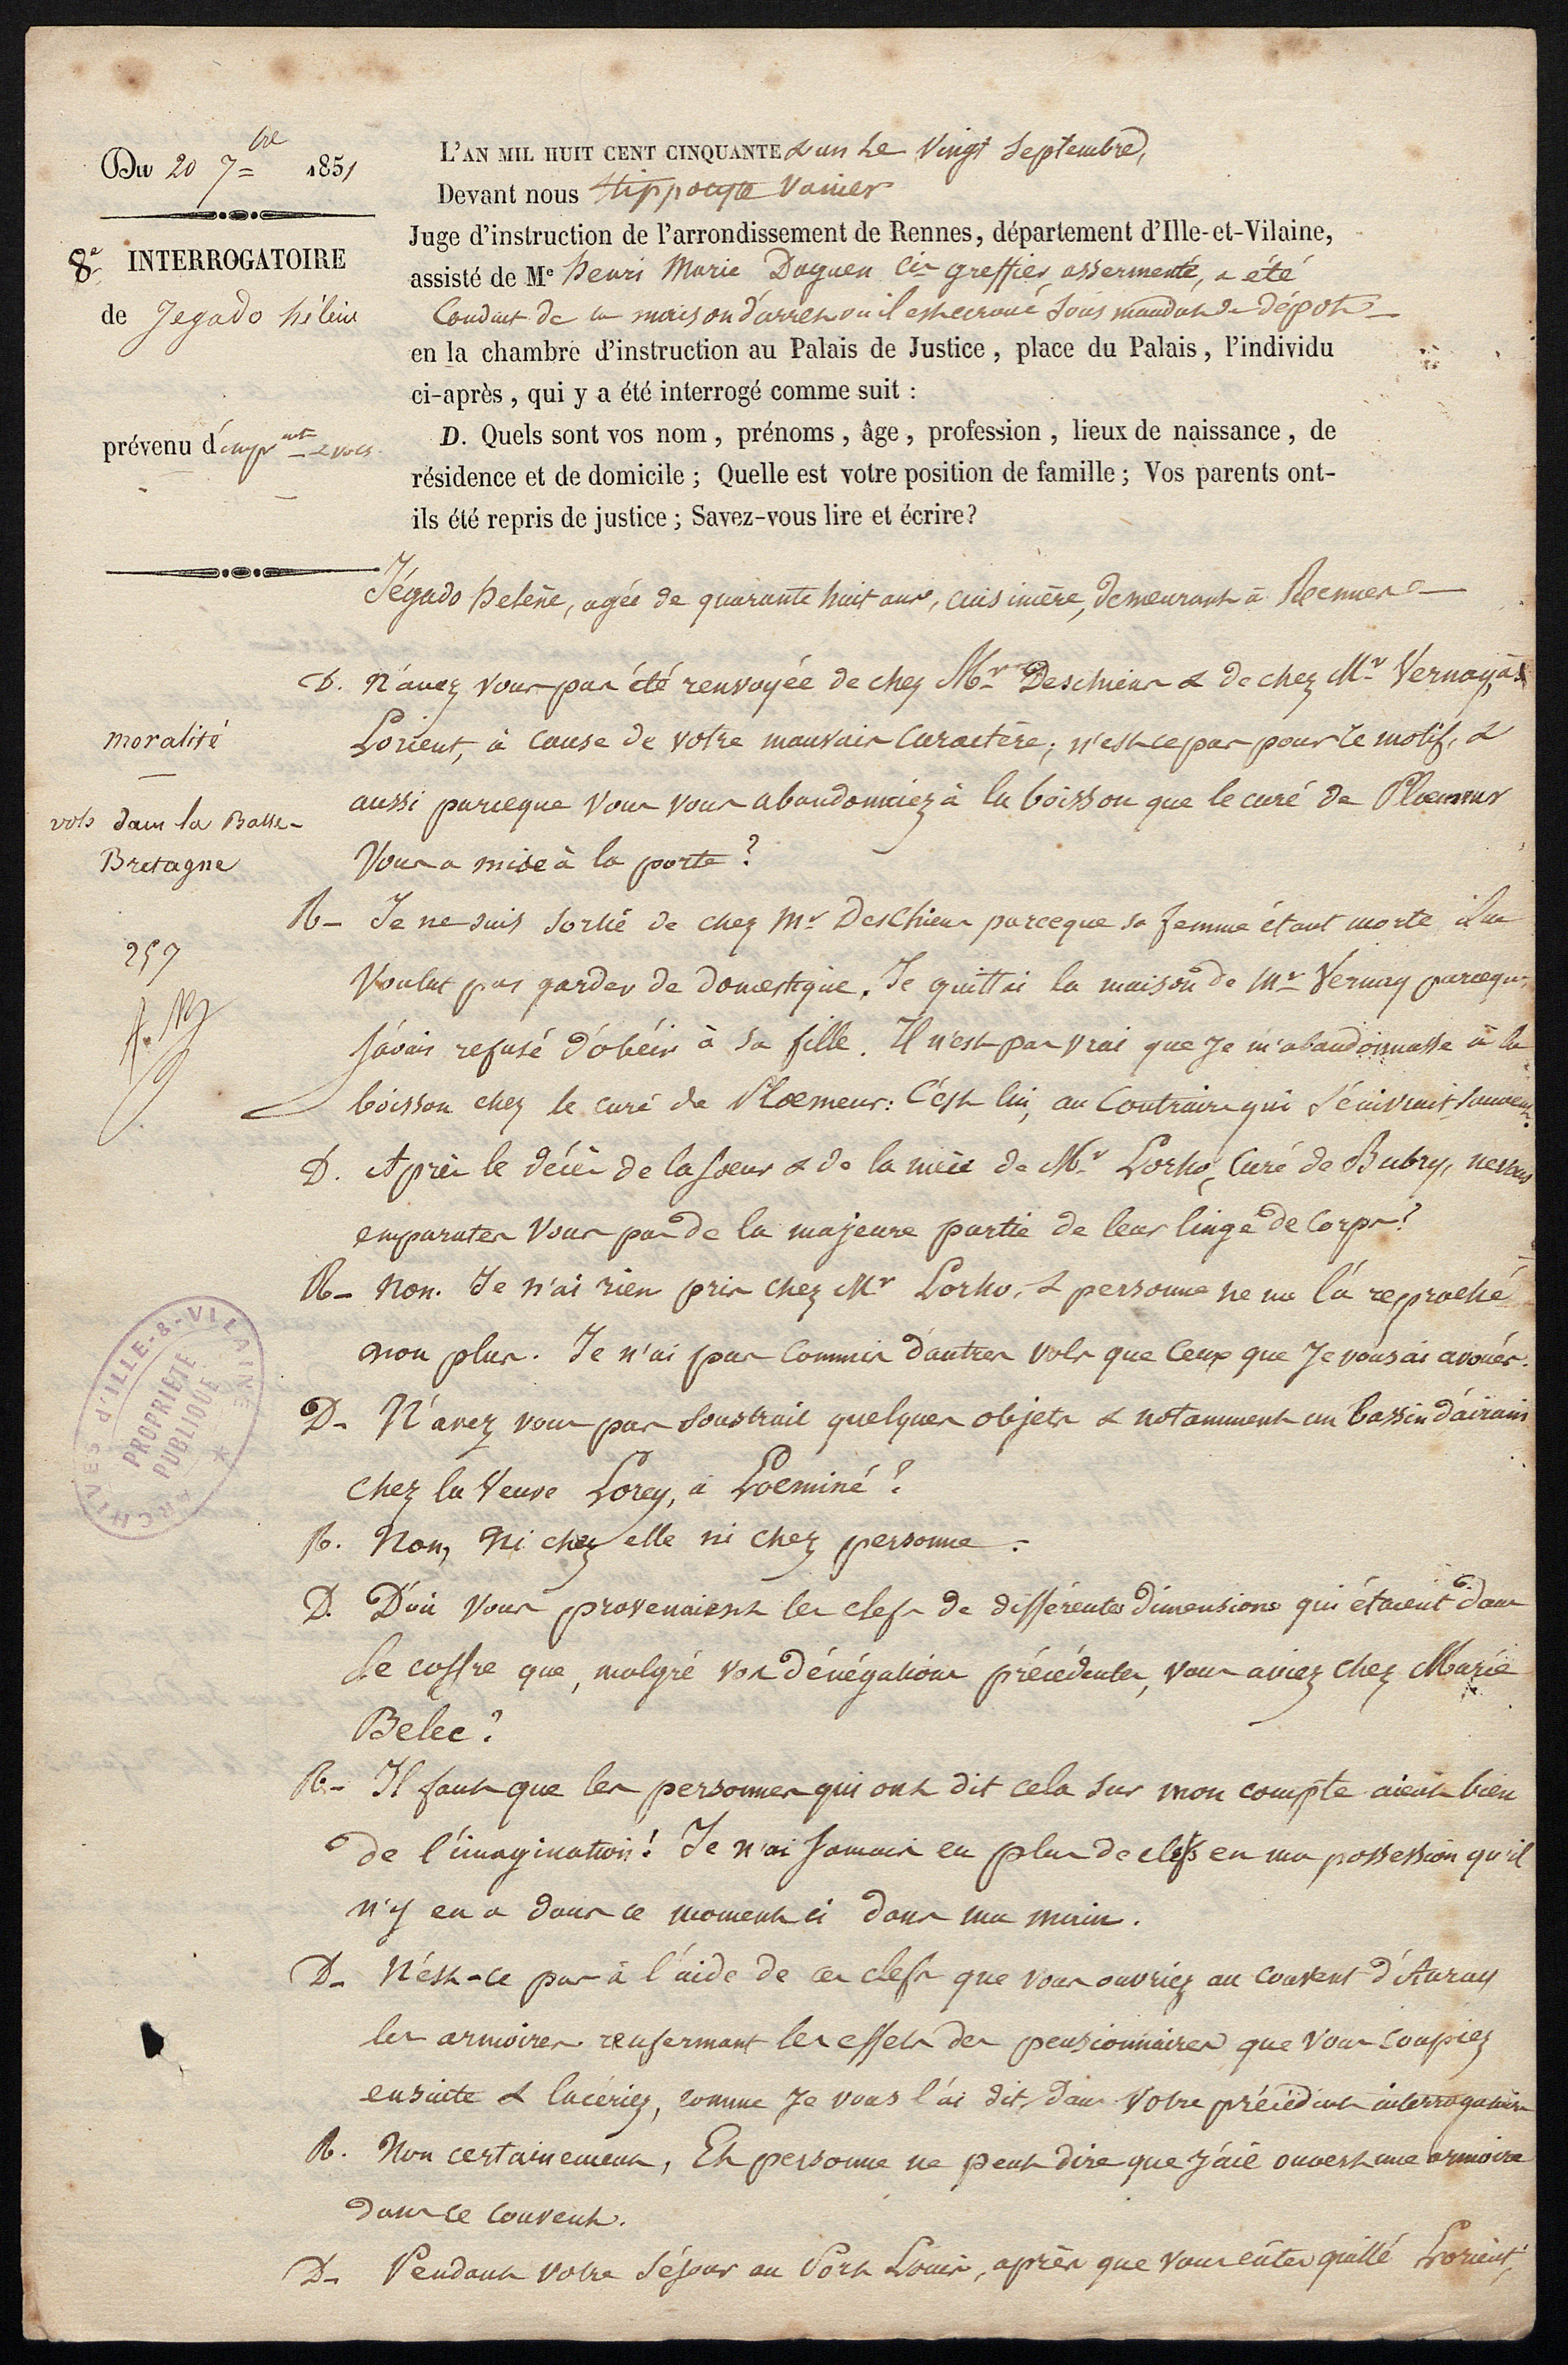 Du 20 7bre 1851
8e INTERROGATOIRE
de Jegado hélène
prévenu d'empnt & vols
moralité
vols dans la Basse-
Bretagne
257
ARCHIVES d'ILLE-&-VILAINE
PROPRIÉTÉ
PUBLIQUE
L'AN MIL HUIT CENT CINQUANTE & un Le Vingt Septembre,
Devant nous Hippolyte Vanier
Juge d'instruction de l'arrondissement de Rennes, département d'Ille-et-Vilaine,
assisté de Me henri Marie Daguen Cis greffier assermenté, a été
Conduit de la maison d'arrêt où il est écroué sous mandat de dépôt
en la chambre d'instruction au Palais de Justice, place du Palais, l'individu
ci-après, qui y a été interrogé comme suit :
D. Quels sont vos nom, prénoms, âge, profession, lieux de naissance, de
résidence et de domicile ; Quelle est votre position de famille ; Vos parents ont-
ils été repris de justice ; Savez-vous lire et écrire?
Jégado helène, agée de quarante huit ans, cuisinière, demeurant à Rennes
D. N'avez vous pas été renvoyée de chez Mr Deschiens & de chez Mr Vernay, à
Lorient, à cause de votre mauvais caractère; n'est ce pas pour ce motif, &
aussi parceque vous vous abandonniez à la boisson que le curé de Ploemeur
vous a mise à la porte?
R- Je ne suis sortie de chez Mr Deschiens parceque sa femme étant morte il ne
voulut pas garder de domestique. Je quittai la maison de Mr Vernay parceque
j'avais refusé d'obéir à sa fille. Il n'est pas vrai que je m'abandonnasse à la
boisson chez le curé de Ploemeur: C'est lui, au contraire qui s'énivrait souvent.
D. Après le décès de la soeur & de la nièce de Mr Lorho, Curé de Bubry, ne vous
emparates vous pas de la majeure partie de leur linge de corps?
R- Non. Je n'ai rien pris chez Mr Lorho, & personne ne me l'a reproché
non plus. Je n'ai pas commis d'autres vols que ceux que je vous ai avoués.
D- N'avez vous pas soustrait quelques objets & notamment un bassin d'airain
chez la Veuve Lorey, à Locminé?
R. Non, ni chez elle ni chez personne.
D. D'où vous provenaient les clefs de différentes dimensions qui étaient dans
le coffre que, malgré vos dénégations précédentes, vous aviez chez Marie
Belec?
R- Il faut que les personnes qui ont dit cela sur mon compte aient bien
de l'imagination! Je n'ai jamais eu plus de clefs en ma possession qu'il
n'y en a dans ce moment ci dans ma main.
D- N'est-ce pas à l'aide de ces clefs que vous ouvriez au couvent d'Auray
les armoires renfermant les effets des pensionnaires que vous coupiez
ensuite & lacériez, comme je vous l'ai dit, dans votre précédent interrogatoire
R. Non certainement, Et personne ne peut dire que j'aie ouvert une armoire
dans ce couvent.
D- Pendant votre séjour au Port Louis, après que vous eûtes quitté Lorient,